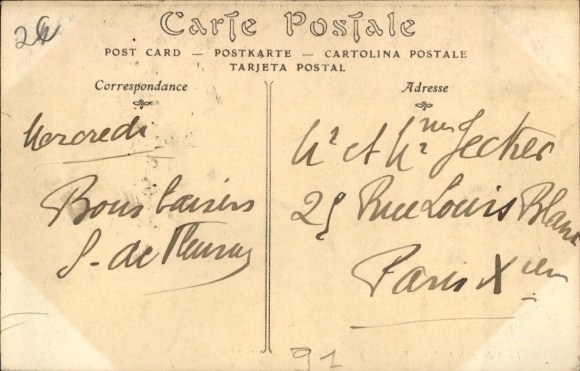 Carte Postale
POST CARD — POSTKARTE — CARTOLINA POSTALE
TARJETA POSTAL
Correspondance
Adresse
Mercredi
Bons baisers
S. de Fleury
Mr et Mme Jecker
25 Rue Louis Blanc
Paris Xième
91